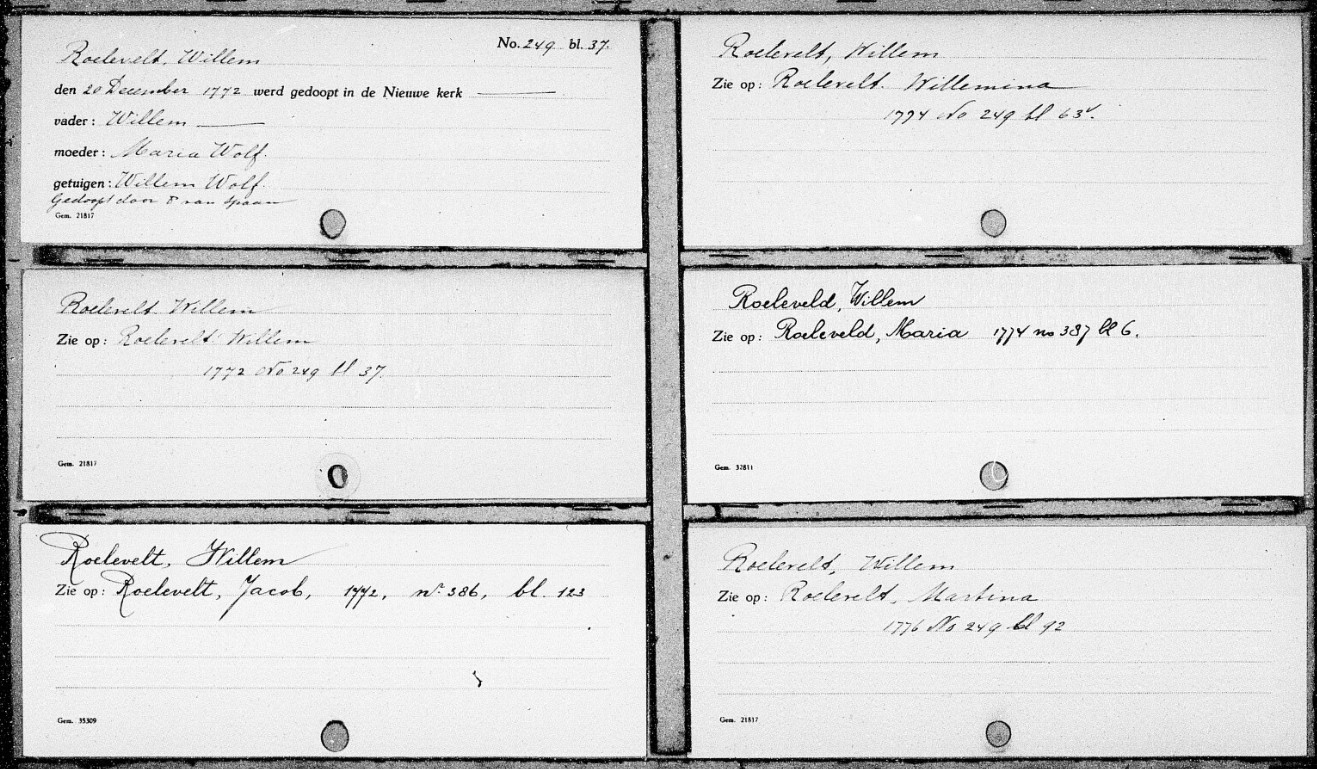 No. 249 bl. 37.
Roelevelt, Willem
den 20 December 1772 werd gedoopt in de Nieuwe kerk
vader: Willem
moeder: Maria Wolf.
getuigen: Willem Wolf.
Gedoopt door P van Spaan
Gem. 21817
Roelevelt Willem
Zie op: Roelevelt Willem
1772 No 249 bl 37.
Gem. 21817
Roelevelt, Willem
Zie op: Roelevelt, Jacob, 1772, no. 386, bl. 123
Gem. 35309
Roelevelt, Willem
Zie op: Roelevelt. Willemina
1774 No 249 bl 63v.
Roeleveld, Willem
Zie op: Roeleveld, Maria 1774 no 387 bl 6.
Gem. 32811
Roelevelt, Willem
Zie op: Roelevelt, Martina
1776 No 249 bl 92
Gem. 21817